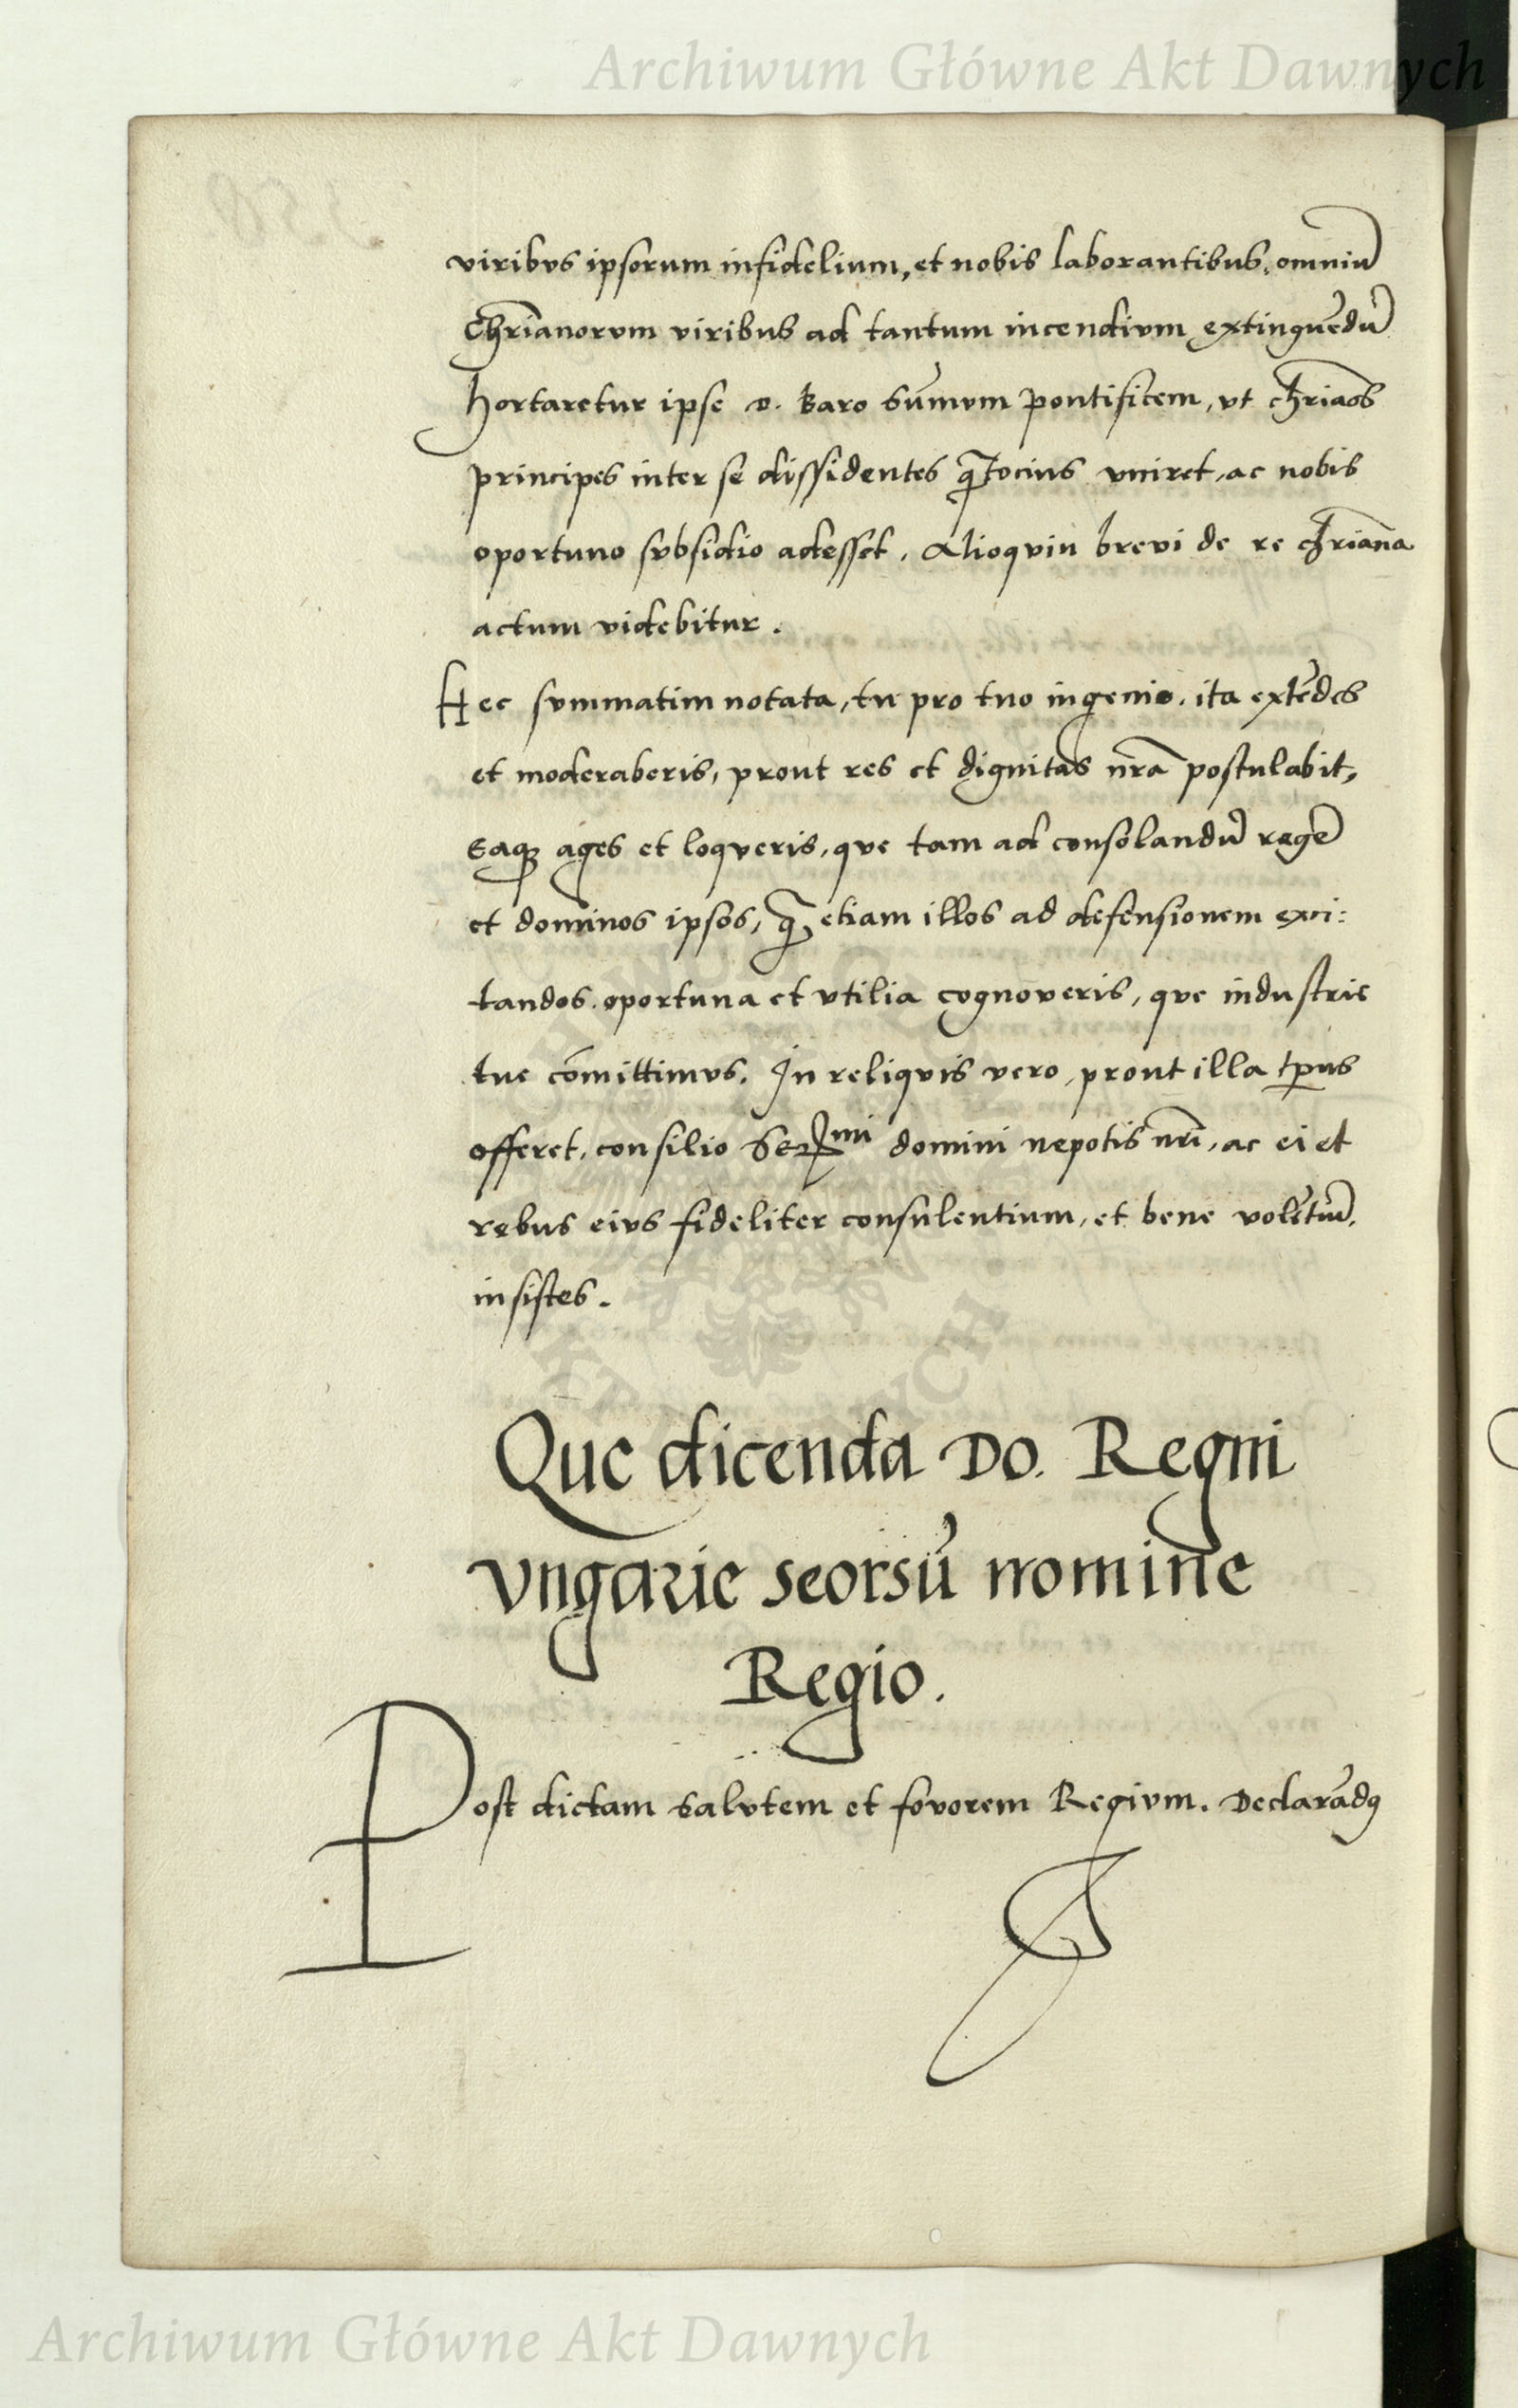 Archiwum Główne Akt Dawnych
viribvs ipsorum infidelium, et nobis laborantibus, omniū
Chrianorvm viribus ad tantum incendivm extinguēdū
hortaretur ipse d. Baro sūmvm pontificem, vt chriaōs
principes inter se dissidentes q̄tocius vniret, ac nobis
oportuno svbsidio adesset. Alioqvin brevi de re chriana
actum videbitur.
Hec svmmatim notata, tu pro tuo ingenio, ita extēdes
et moderaberis, prout res et dignitas nrā postulabit,
Eaqꝫ ages et loqveris, qve tam ad consolandū regē
et dominos ipsos, q̄ etiam illos ad defensionem exci:
tandos oportuna et vtilia cognoveris, qve industrie
tue cōmittimvs. In reliqvis vero, prout illa tp̄us
offeret, consilio Serᵐⁱ domini nepotis nrī, ac ei et
rebus eivs fideliter consulentium, et bene volētiū,
insistes.
Que dicenda Do. Regni
vngarie seorsū nomine
Regio.
Post dictam salvtem et favorem Regivm. Declarādꝯ
Archiwum Główne Akt Dawnych